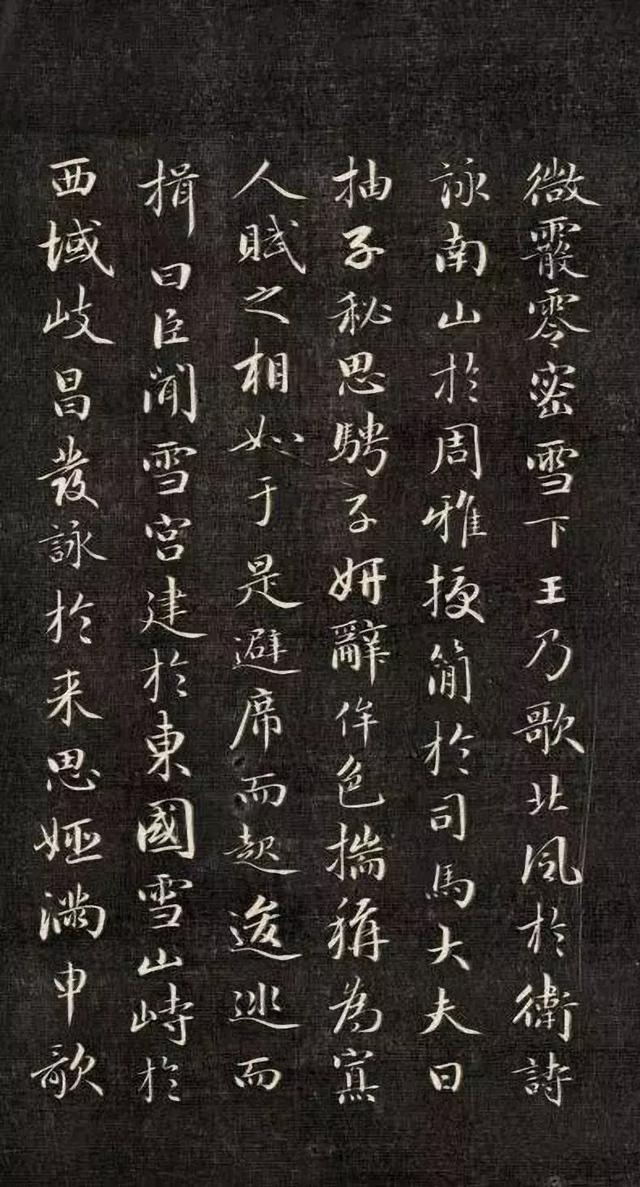 微霰零密雪下王乃歌北风於衛詩
詠南山於周雅授簡於司馬大夫曰
抽子秘思騁子妍辭侔色揣稱為寡
人賦之相如于是避席而起逡巡而
揖曰臣聞雪宮建於東國雪山峙於
西域岐昌發詠於来思姬滿申歌